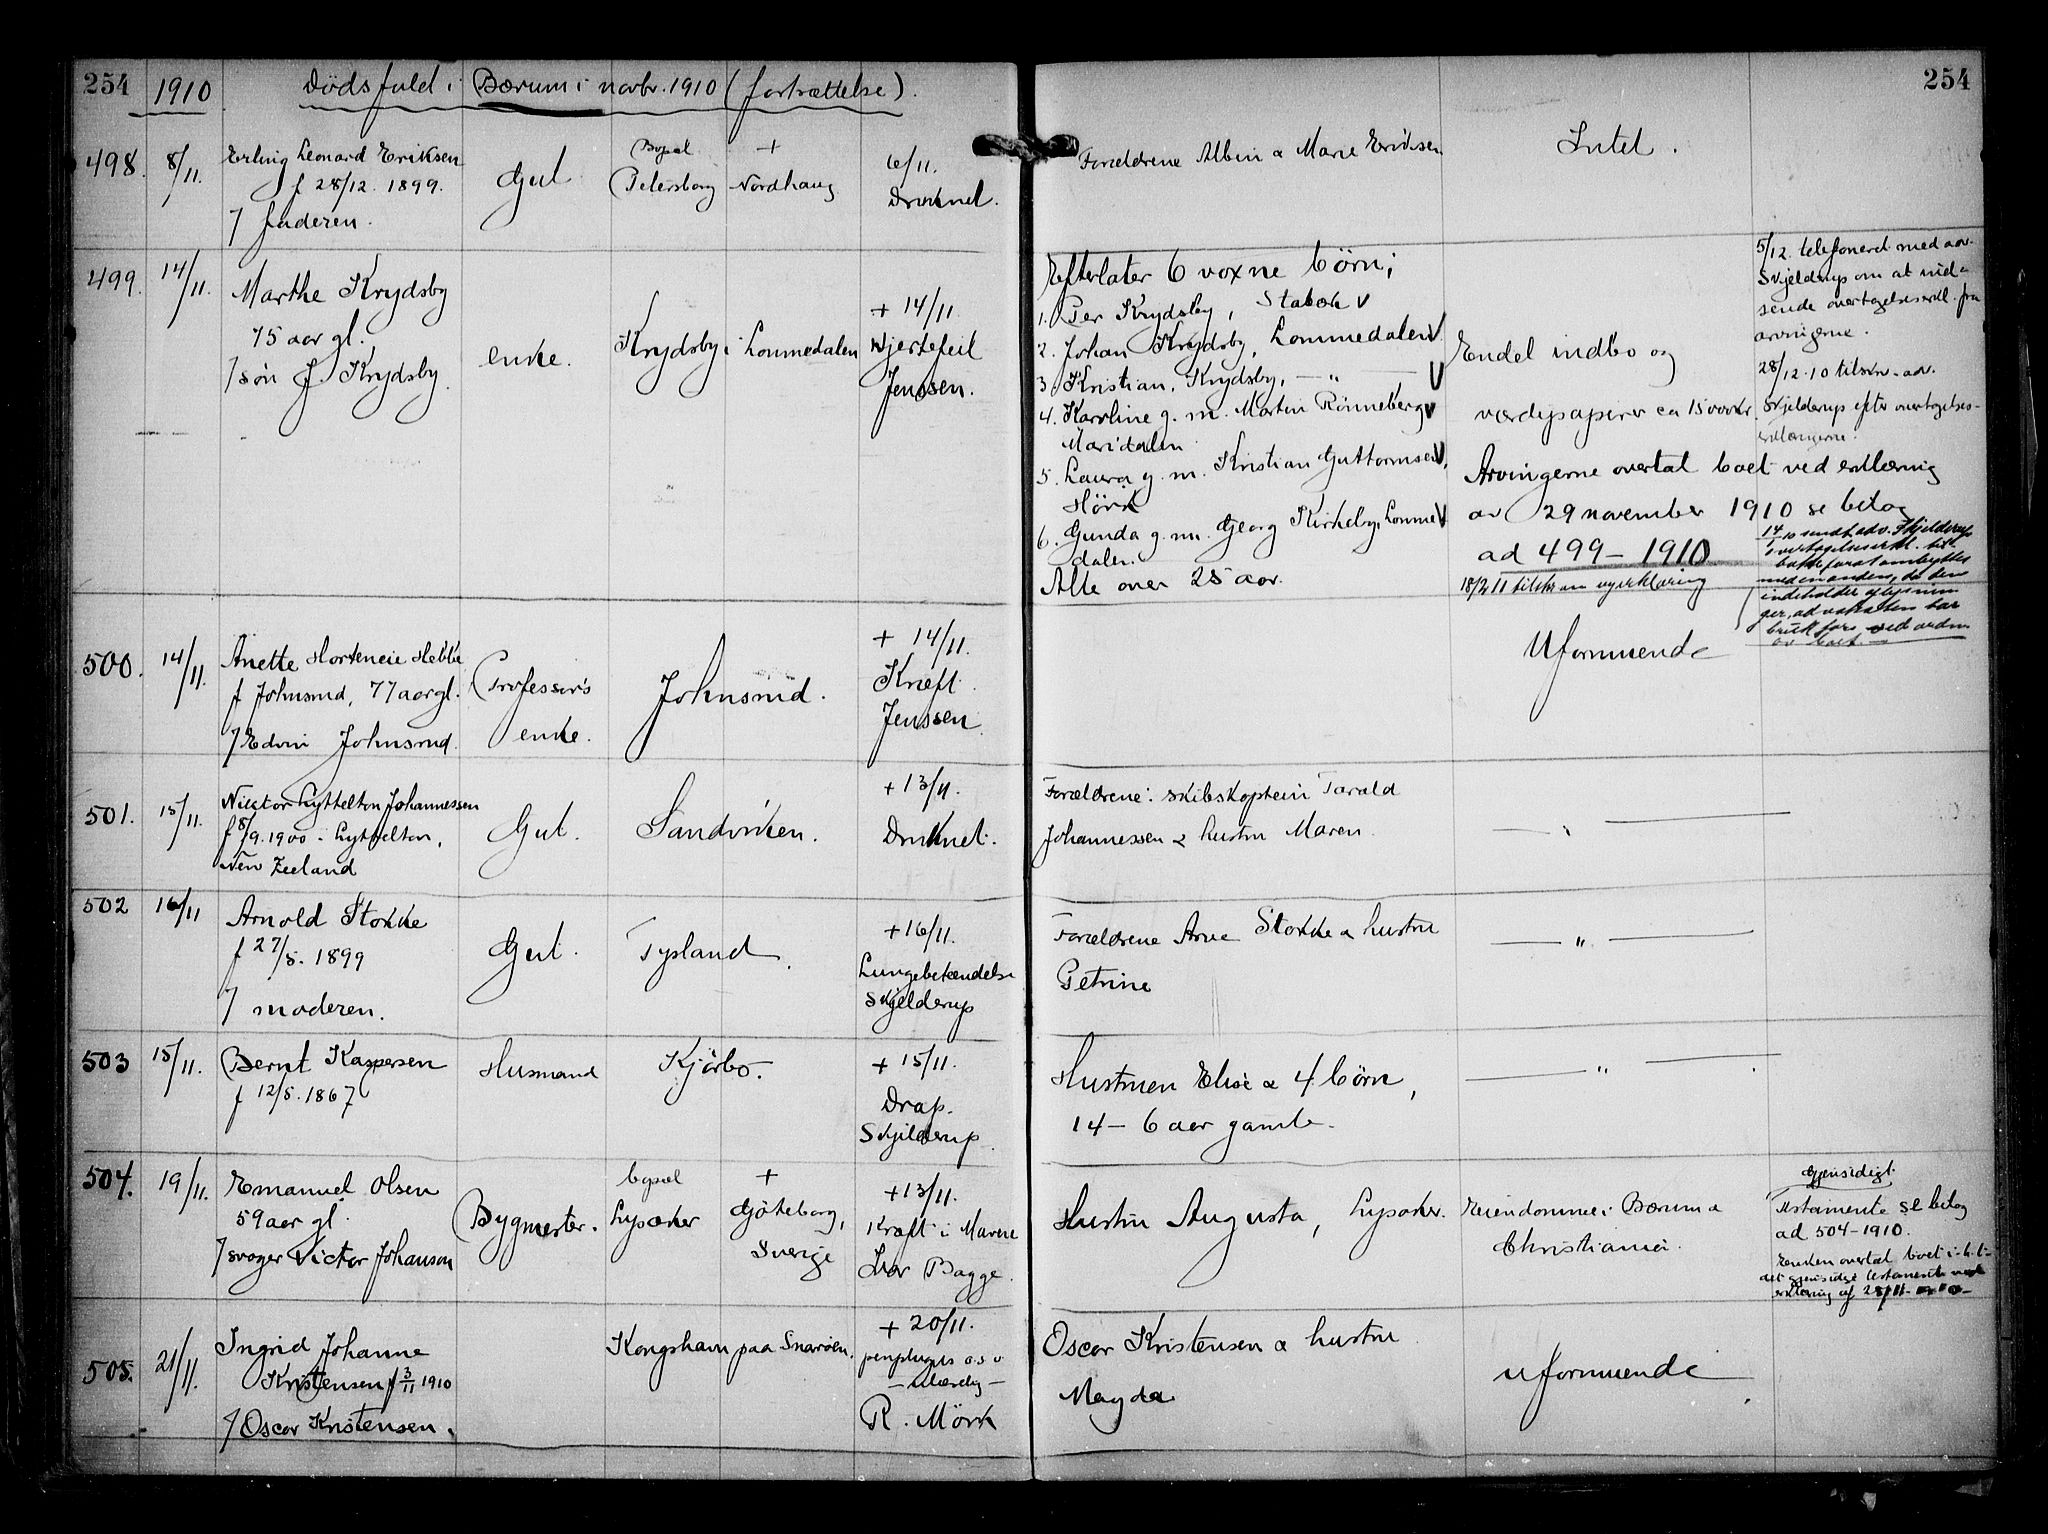 254
1910
Dödsfald i Bærum i novbr. 1910 (fortsættelse).
254
498. 8/11.
Erling Leonard Eriksen
f 28/12. 1899.
/ faderen.
Gut
Bopæl
Petersborg
+
Nordhaug
6/11.
Druknet.
Forældrene Albin & Marie Eriksen
Intet.
499. 14/11.
Marthe Krydsby
75 aar gl.
/ søn J. Krydsby.
enke.
Krydsby i Lommedalen
+ 14/11
Hjertefeil
Jenssen.
Efterlater 6 voxne børn;
1. Per Krydsby, Stabæk v
2. Johan Krydsby, Lommedalen v
3. Kristian Krydsby, — " — v
4. Karoline g. m. Martin Rønneberg v
Maridalen
5. Laura g. m. Kristian Guttormsen v,
Hörk
6. Gunda g. m. Georg Kirkeby, Lomme v
dalen.
Alle over 25 aar.
Endel indbo og
værdipapirer ca 15000 kr.
Arvingerne overtat boet ved erklæring
av 29 november 1910 se bilag
ad 499 – 1910
18/2 11 tilskr om ny erklæring
5/12. telefonert med adv.
Skjelderup om at ind-
sende overtagelseserkl. fra
arvingerne.
28/12. 10 tilskr. adv.
Skjelderup efter overtagelses-
erklæringerne.
14/ sendt adv. Skjelderup
overtagelseserkl. til-
bake for at ombyttes
med en anden, da den
indeholder oplysnin
ger, advokaten har
bruk for ved ordn.
av boet.
500. 14/11.
Anette Hortensie Hebbe
f Johnsrud, 77 aar gl.
/ Edvin Johnsrud.
Professor's
enke.
Johnsrud.
+ 14/11.
Kræft.
Jenssen
Uformuende
501. 15/11.
Victor Lyttelton Johannessen
f 8/9. 1900 i Lyttelton,
New Zeeland
Gut.
Sandviken.
+ 13/11.
Druknet.
Forældrene: skibskaptein Tarald
Johannessen & hustru Maren.
— " —
502 16/11
Arnold Stokke
f 27/5. 1899
/ moderen.
Gut.
Tysland.
+ 16/11.
Lungebetændelse
Skjelderup
Forældrene Arne Stokke & hustru
Petrine
— " —
503 15/11.
Bernt Kaspersen
f 12/5. 1867
Husmand
Kjørbo.
+ 15/11.
Drap.
Skjelderup.
Hustruen Elise & 4 børn,
14 – 6 aar gamle.
— " —
504. 19/11.
Emanuel Olsen
59 aar gl.
/ svoger Victor Johanson
Bygmester.
bopæl
Lysaker
+
Göteborg,
Sverige
+ 13/11.
Kræft i Maven
Ivar Bagge.
Hustru Augusta, Lysaker.
Eiendomme i Bærum &
Christiania.
Gjensidigt
Testamente se bilag
ad 504 – 1910.
Enken overtat boet i h. t.
det gjensidige testamente ved
erklæring af 28/11
505. 21/11.
Ingrid Johanne
Kristensen f 3/11 1910
/ Oscar Kristensen.
Kongshavn paa Snarøen.
+ 20/11.
pemphigus o.s.v.
R. Mörk
Oscar Kristensen & hustru
Magda
uformuende.